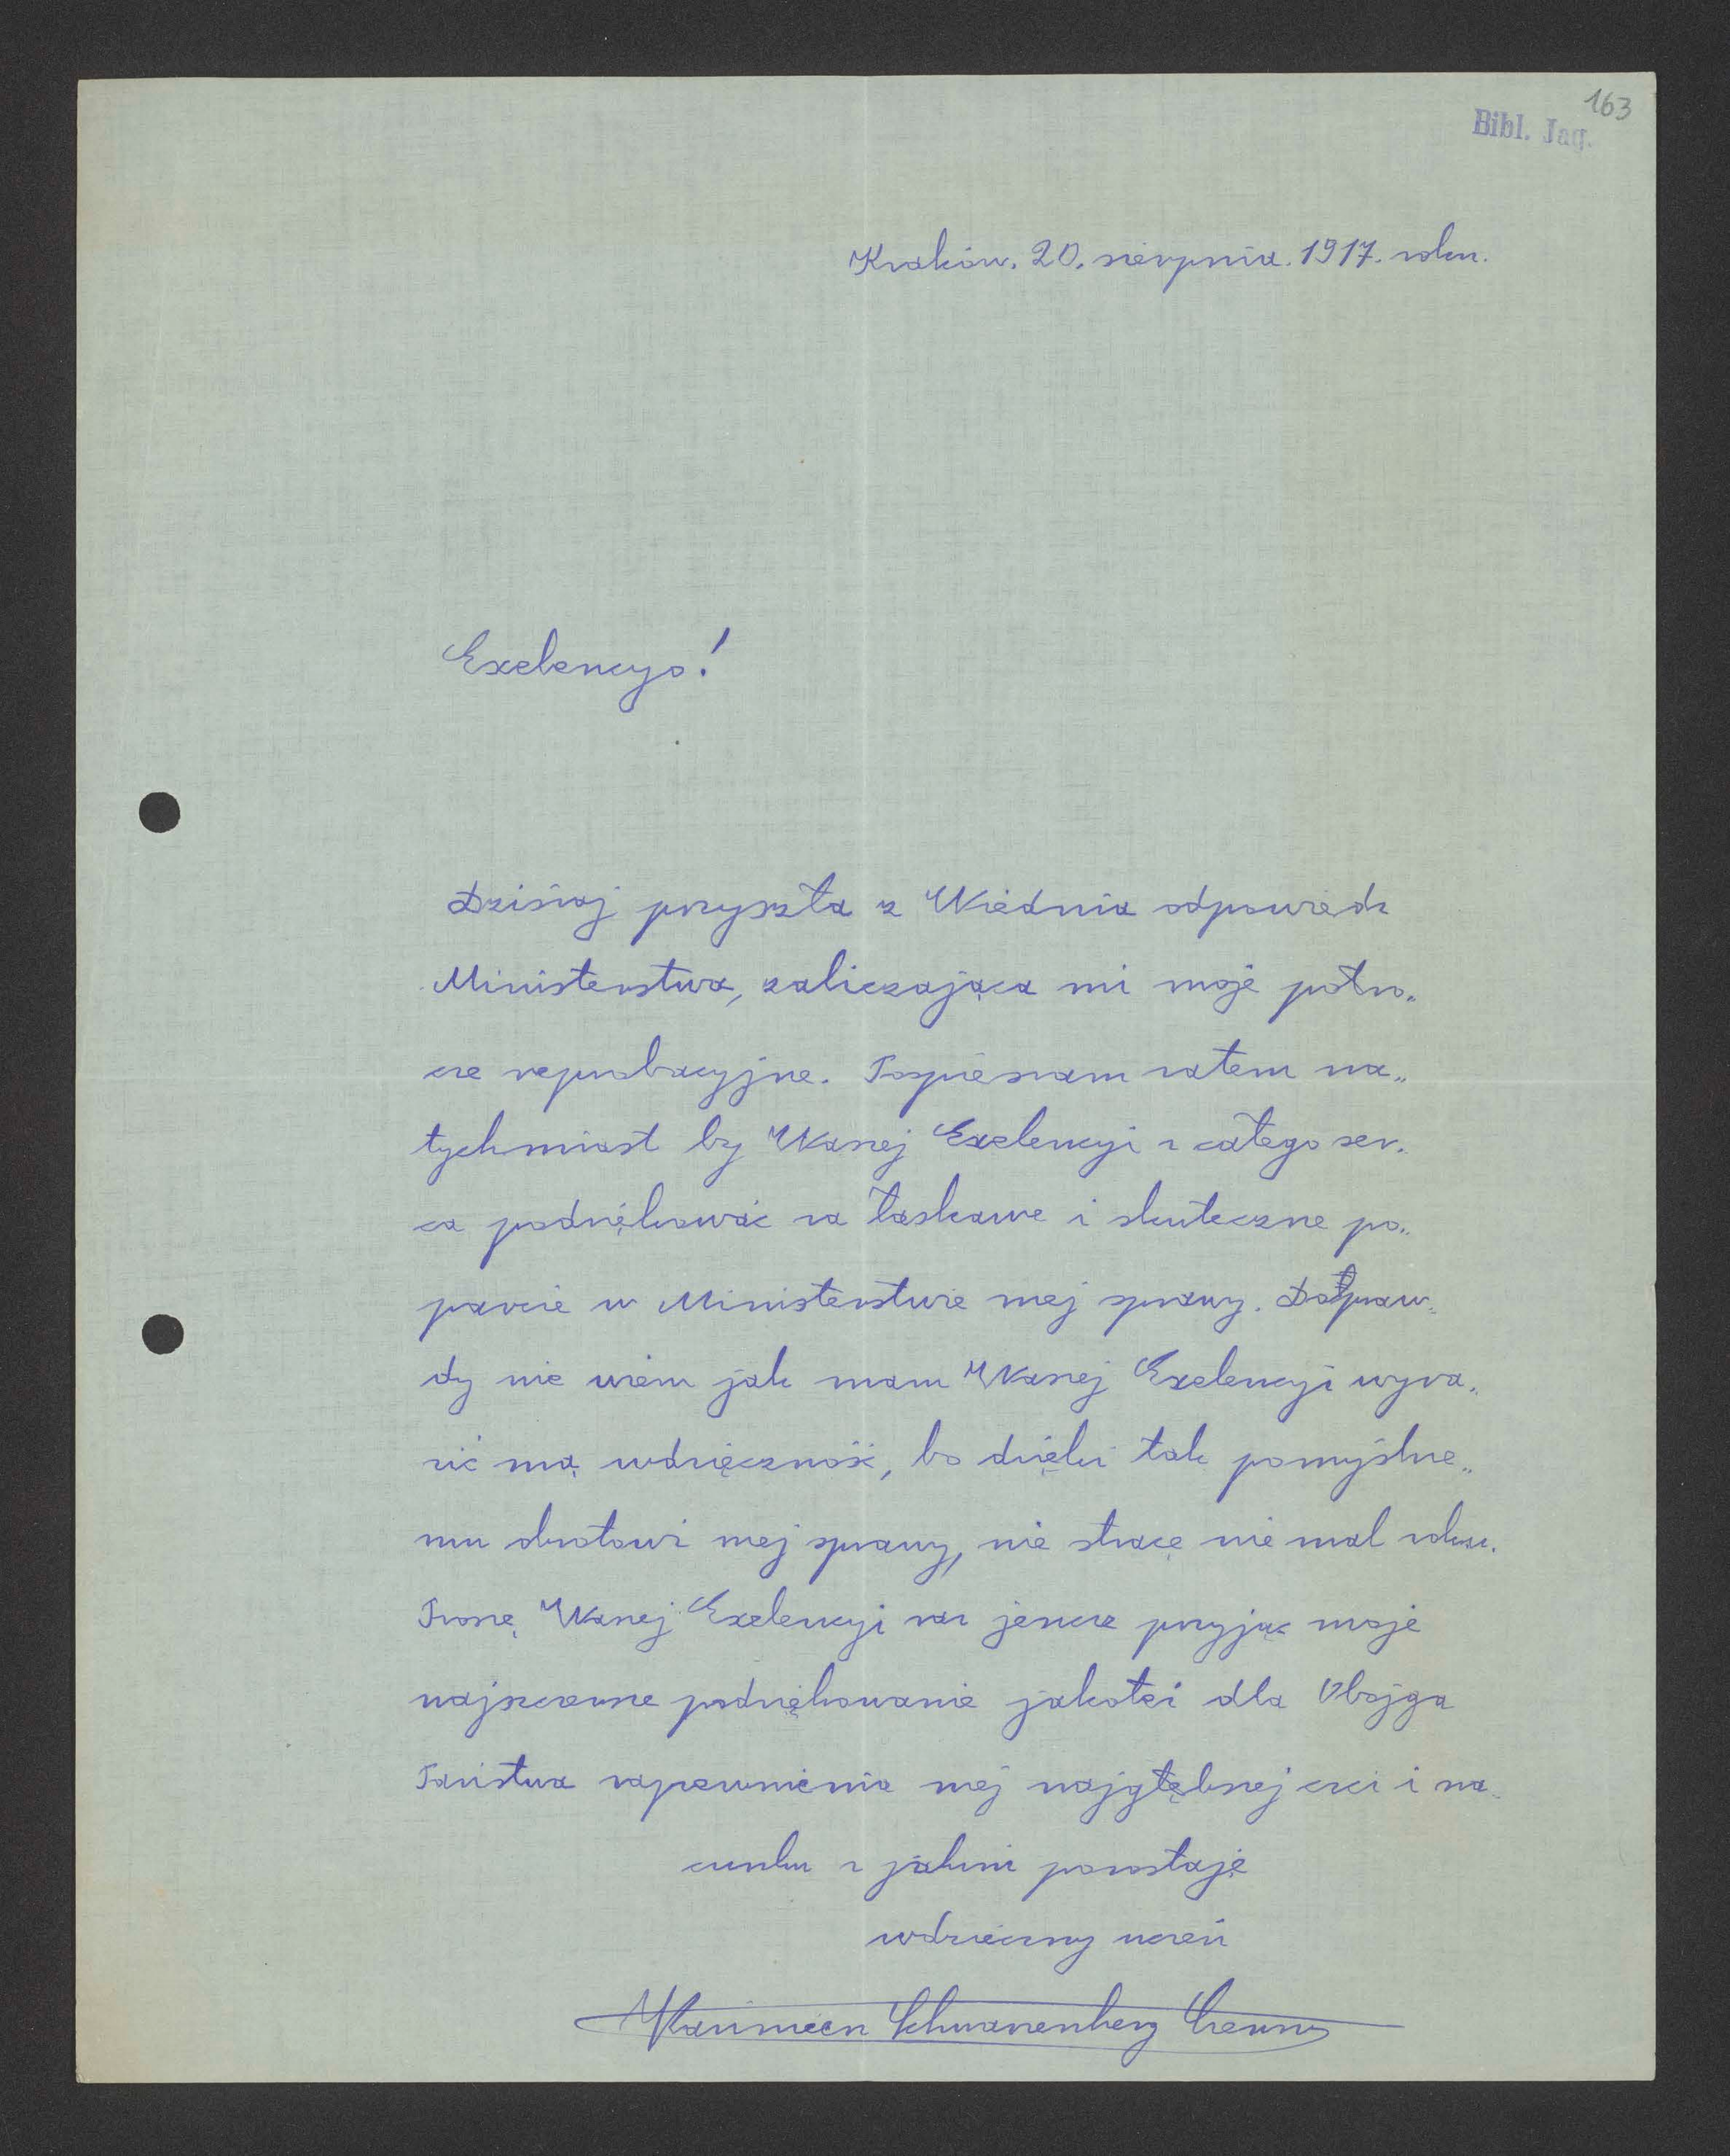 163
Bibl. Jag.
Kraków. 20. sierpnia. 1917. roku.
Exelencyo!
Dzisiaj przyszła z Wiednia odpowiedz
Ministerstwa, zaliczająca mi moje półro„
cze reprobacyjne. Pospieszam zatem na„
tychmiast by Waszej Exelencyi z całego ser„
ca podziękować za łaskawe i skuteczne po„
parcie w Ministerstwie mej sprawy. Doþraw„
dy nie wiem jak mam Waszej Exelencyi wyra„
zić mą wdzięczność, bo dzięki tak pomyślne„
mu obrotowi mej sprawy, nie stracę nie mal roku.
Proszę Waszej Exelencyi raz jeszcze przyjąć moje
najszczersze podziękowanie jakoteż dla Obojga
Państwa zapewnienia mej najgłębszej czci i sza„
cunku z jakimi pozostaję
wdzięczny uczeń
Kazimierz Schwarzenberg Czerny